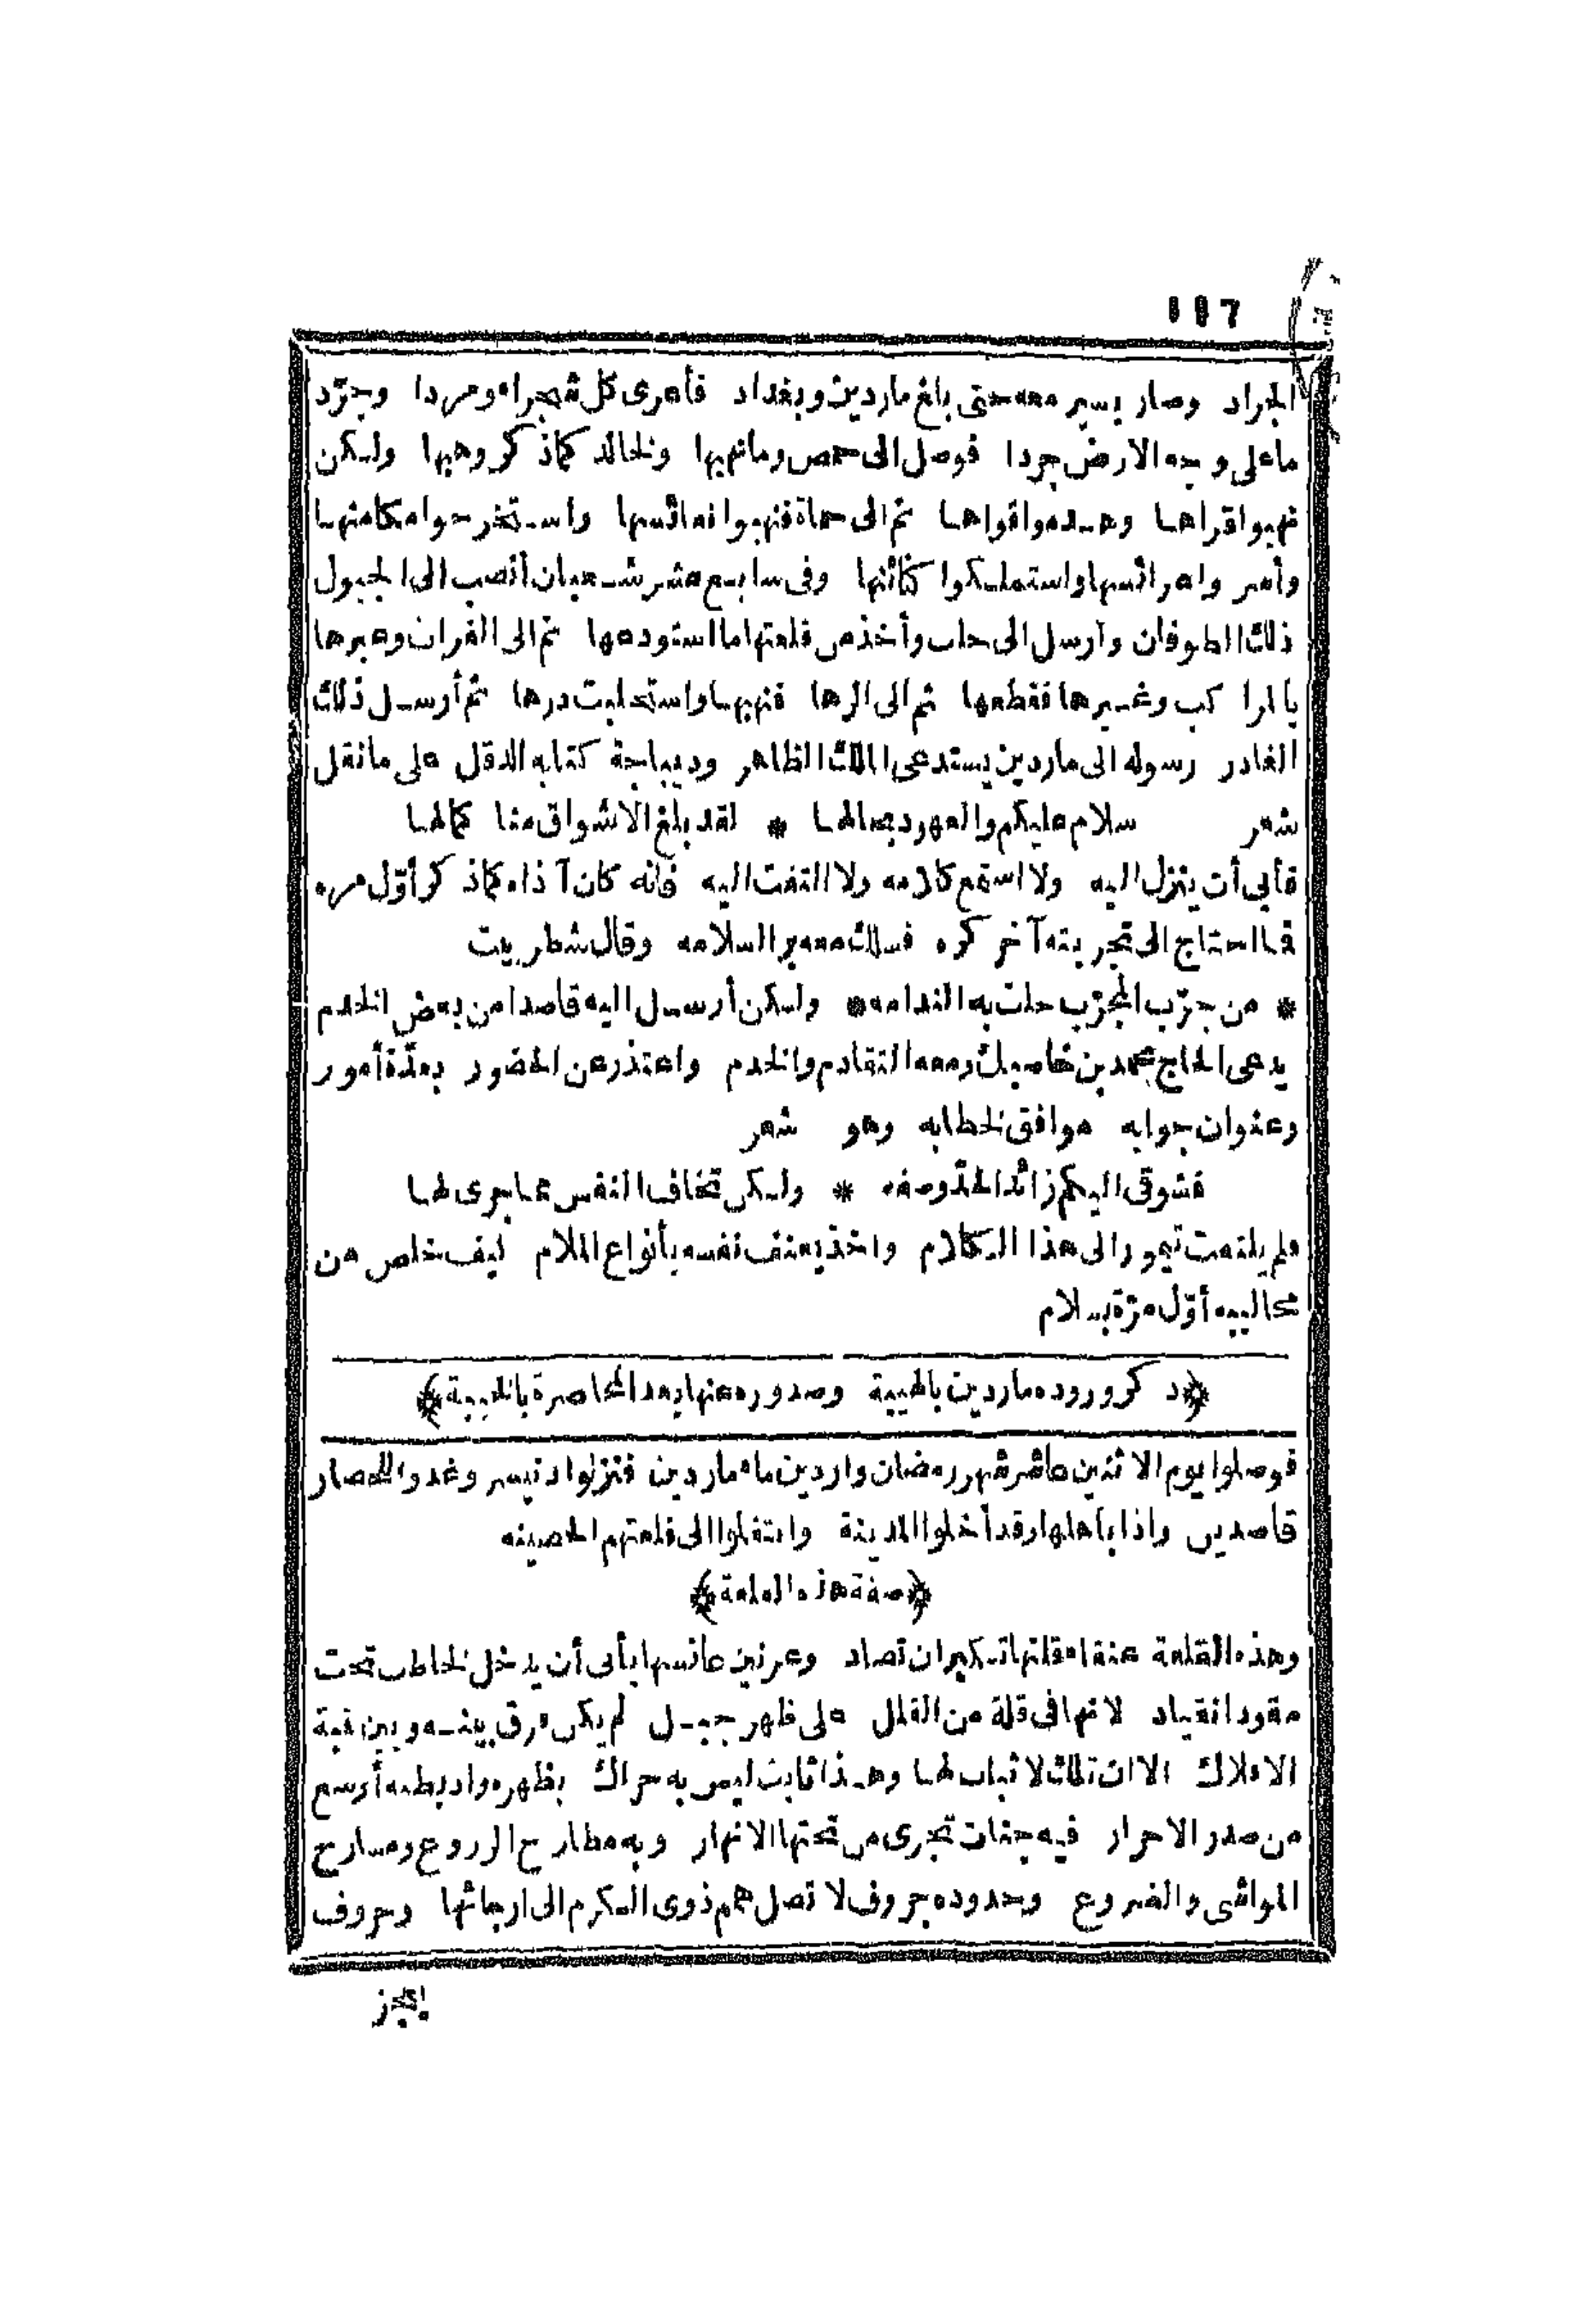 ١١٦
الجراد وصار يسير معه حتى بلغ ماردين وبغداد فأعرى كل شجراء ومردا وجرّد
ما على وجه الارض جردا فوصل الى حمص وما نهبها ولخالد كما ذكر وهبها ولكن
نهبوا قراها وهدموا قواها ثم الى حماة فنهبوا نفائسها واستخرجوا مكامنها
وأسروا عرائسها واستملكوا كنائنها وفى سابع عشر شعبان أنصب الى الجبول
ذلك الطوفان وأرسل الى حلب وأخذ من قلعتها ما استودعها ثم الى الفرات وعبرها
بالمراكب وغيرها فقطعها ثم الى الرها فنهبها واستحلبت درها ثم أرسل ذلك
الغادر رسوله الى ماردين يستدعى الملك الظاهر وديباجة كتابه الدقل على ما نقل
شعر سلام عليكم والعهود بحالها * لقد بلغ الاشواق منا كمالها
فأبى أن ينزل اليه ولا استمع كلامه ولا التفت اليه فانه كان آذاه كما ذكر أوّل مره
فما احتاج الى تجربته آخر كره فسلك معه بر السلامه وقال شطر بيت
* من جرّب المجرّب حلت به الندامه * ولكن أرسل اليه قاصدا من بعض الخدم
يدعى الحاج محمد بن خاصبك ومعه التقادم والخدم واعتذر عن الحضور بعدّة أمور
وعنوان جوابه موافق لخطابه وهو شعر
فشوقى اليكم زائد الحدّ وصفه * ولكن تخاف النفس مما جرى لها
فلم يلتفت تيمور الى هذا الكلام واخذ يعنف نفسه بأنواع الملام كيف خلص من
مخاليبه أوّل مرّة بسلام
﴿ذكر وروده ماردين بالهيبة وصدوره عنها بعد المحاصرة بالخيبة﴾
فوصلوا يوم الاثنين عاشر شهر رمضان واردين ماء ماردين فنزلوا دنيسر وغدوا للحصار
قاصدين واذا بأهلها وقد أخلوا المدينة وانتقلوا الى قلعتهم الحصينه
﴿صفة هذه القلعة﴾
وهذه القلعة عنقاء قلتها تكبر ان تصاد وعرنين عانسها يأبى أن يدخل لخاطب تحت
مقود انقياد لانها فى قلة من القلل على ظهر جبل لم يكن فرق بينه وبين قبة
الافلاك الا ان تلك لا ثبات لها وهذا ثابت ليس به حراك بظهره واد بطنه أوسع
من صدر الاحرار فيه جنات تجرى من تحتها الانهار وبه مطارح الزروع ومسارح
المواشى والضروع وحدوده جروف لا تصل همم ذوى الكرم الى ارجائها وحروف